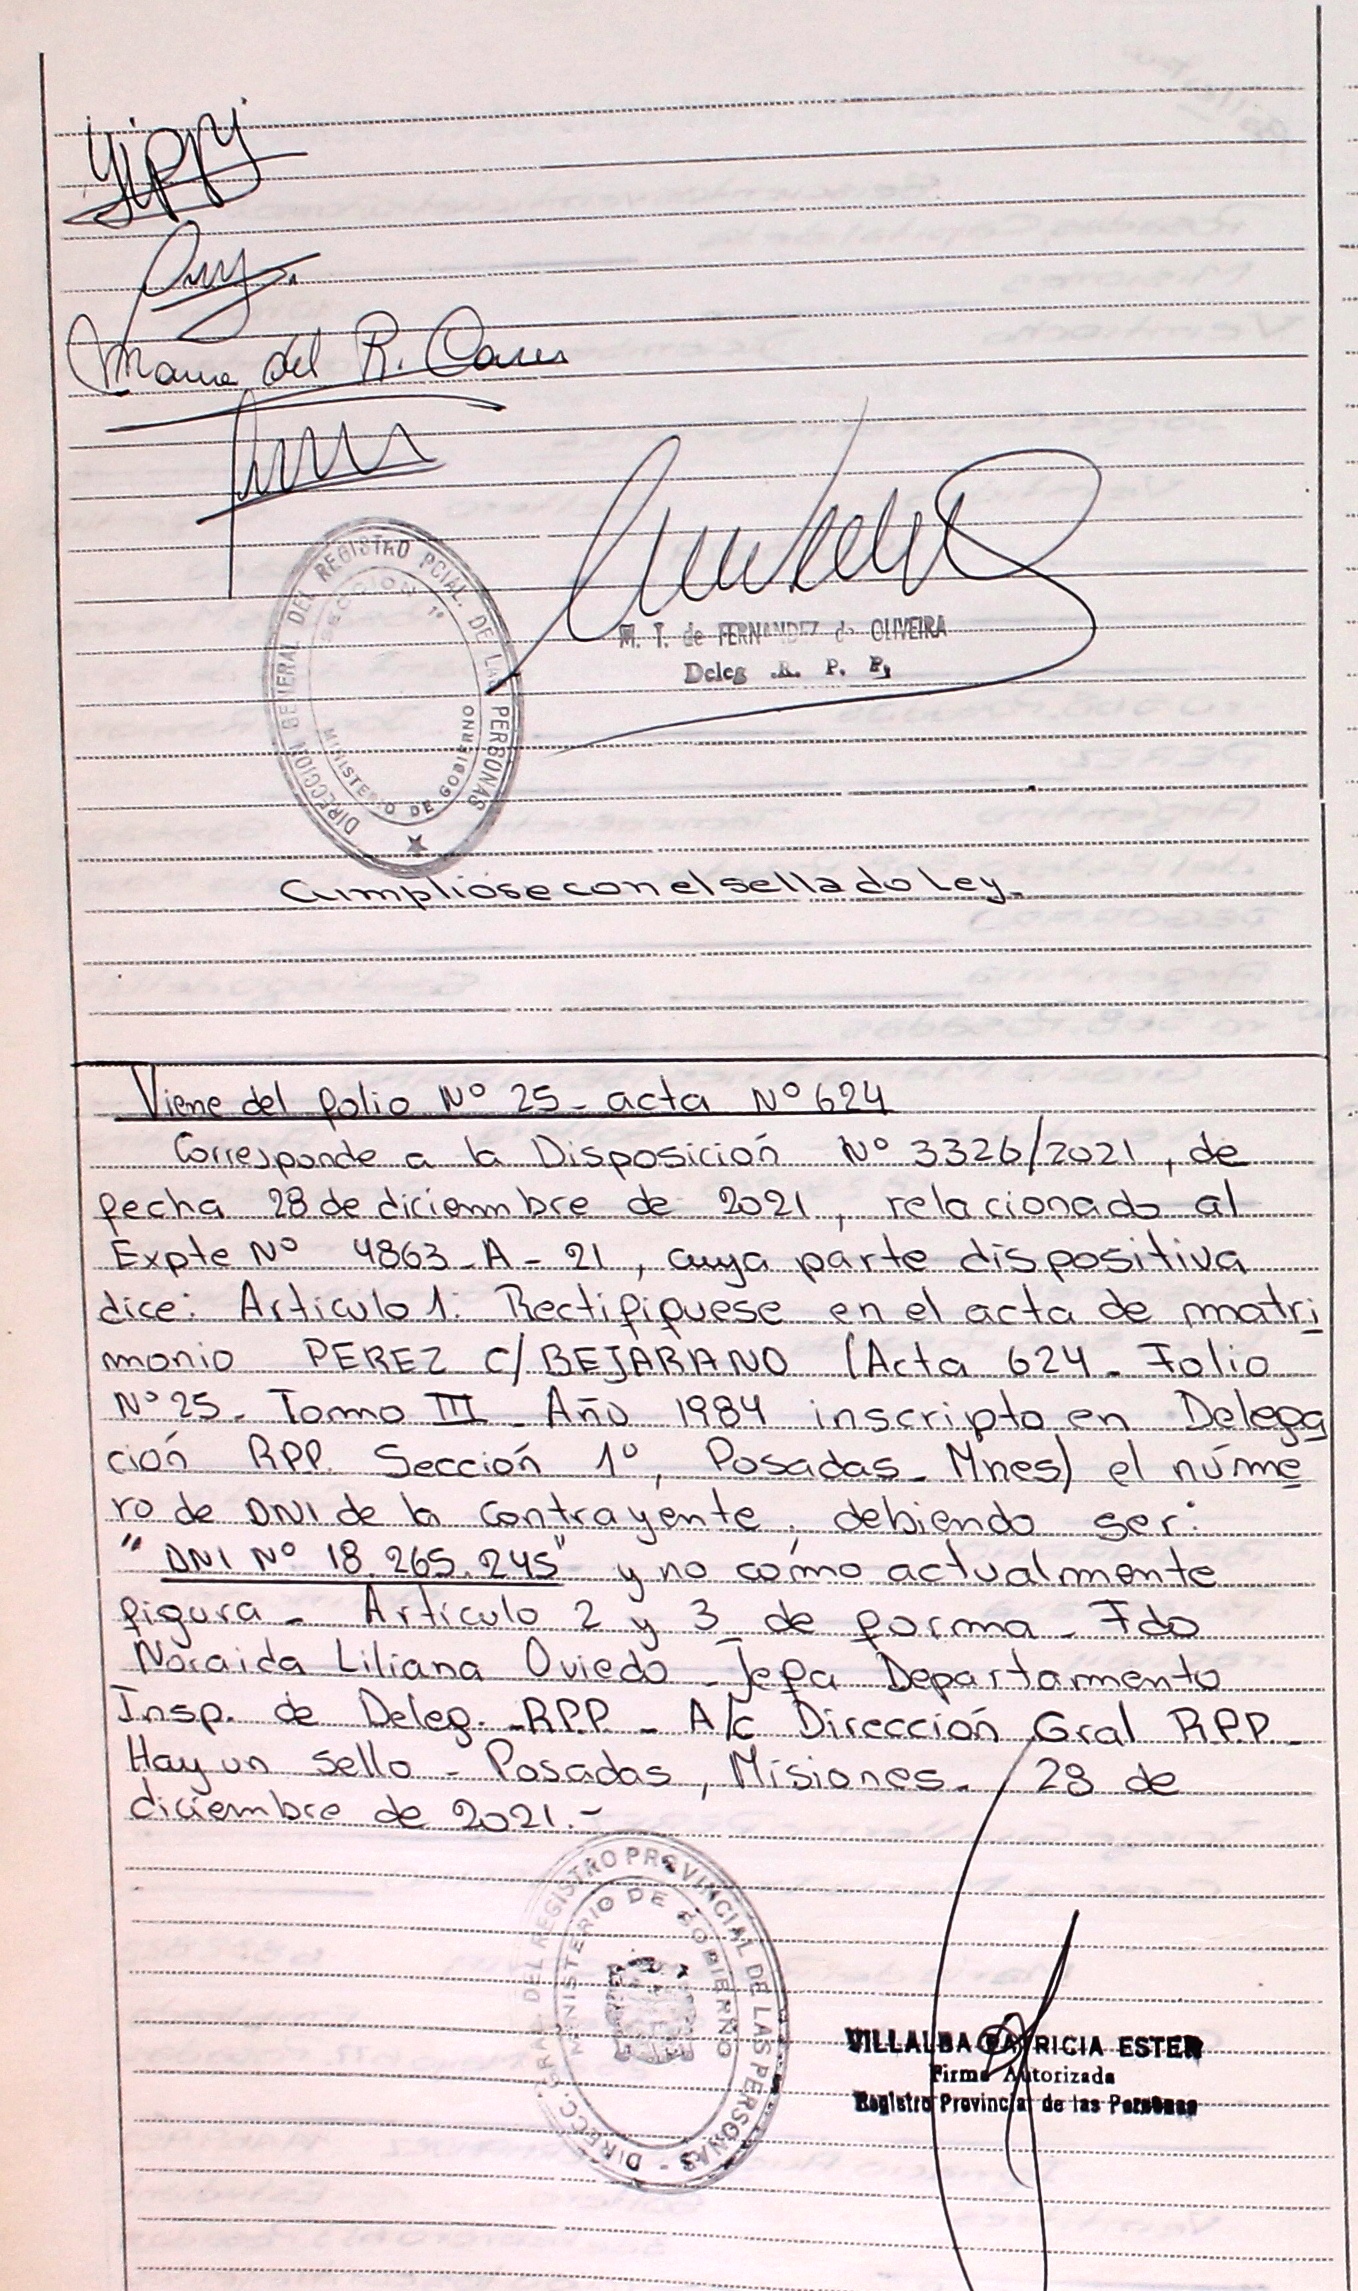 Maria del R.
DIRECCION GENERAL DEL REGISTRO PCIAL. DE LAS PERSONAS
SECCION 1º
MINISTERIO DE GOBIERNO
M. T. de FERNANDEZ de OLIVEIRA
Deleg .R. P. P,
Cumpliose con el sellado Ley.
Viene del folio Nº 25 - acta Nº 624
Corresponde a la Disposición Nº 3326/2021, de
fecha 28 de diciembre de 2021, relacionado al
Expte Nº 4863 - A - 21, cuya parte dispositiva
dice: Artículo 1: Rectifíquese en el acta de matri
monio PEREZ C/ BEJARANO (Acta 624 - Folio
Nº 25 - Tomo III - Año 1984 inscripto en Delega
ción RPP. Sección 1º, Posadas - Mnes) el núme
ro de DNI de la contrayente, debiendo ser:
"DNI Nº 18.265.245" y no cómo actualmente
figura - Artículo 2 y 3 de forma - Fdo
Noraida Liliana Oviedo - Jefa Departamento
Insp. de Deleg. - R.P.P. - A/c Dirección Gral R.P.P. -
Hay un sello - Posadas, Misiones - 28 de
diciembre de 2021.-
DIRECC. GRAL. DEL REGISTRO PROVINCIAL DE LAS PERSONAS -
MINISTERIO DE GOBIERNO
VILLALBA PATRICIA ESTER
Firma Autorizada
Registro Provincial de las Personas